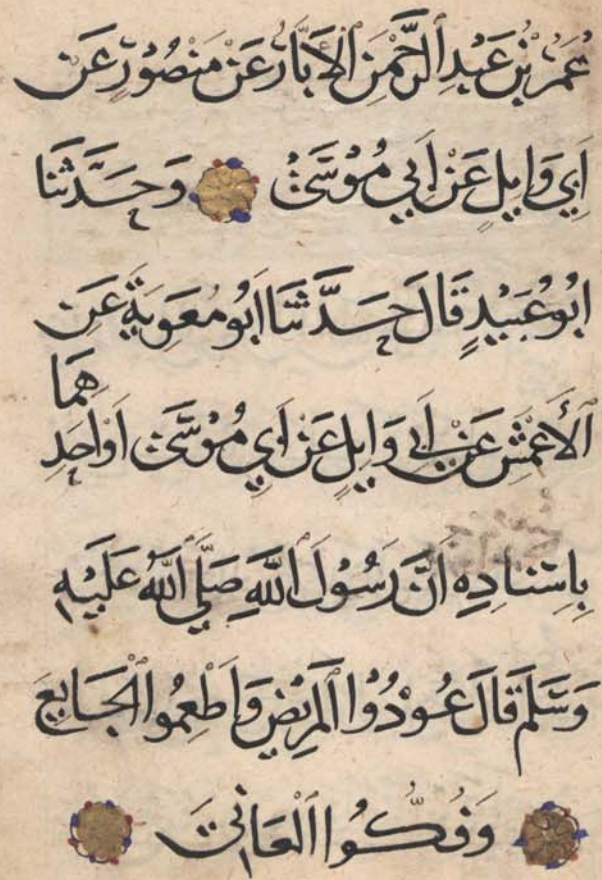 عُمَرُ بْنُ عَبْدِ الرَّحْمَنِ الْأَبَّارُ عَنْ مَنْصُورٍ عَنْ
أَبِي وَايِلٍ عَنْ أَبِي مُوْسَىٰ وَحَدَّثَنَا
أَبُو عُبَيْدٍ قَالَ حَدَّثَنَا أَبُو مُعَوِيَةَ عَنِ
الْأَعْمَشِ عَنْ أَبِي وَايِلٍ عَنْ أَبِي مُوْسَىٰ أَوْ أَحَدِ
هِمَا
بِإِسْنَادِهِ أَنَّ رَسُوْلَ اللَّهِ صَلَّى اللَّهُ عَلَيْهِ
وَسَلَّمَ قَالَ عُوْدُوْا الْمَرِيْضَ وَأَطْعِمُوا الْجَايِعَ
وَفُكُّوْا الْعَانِيَ